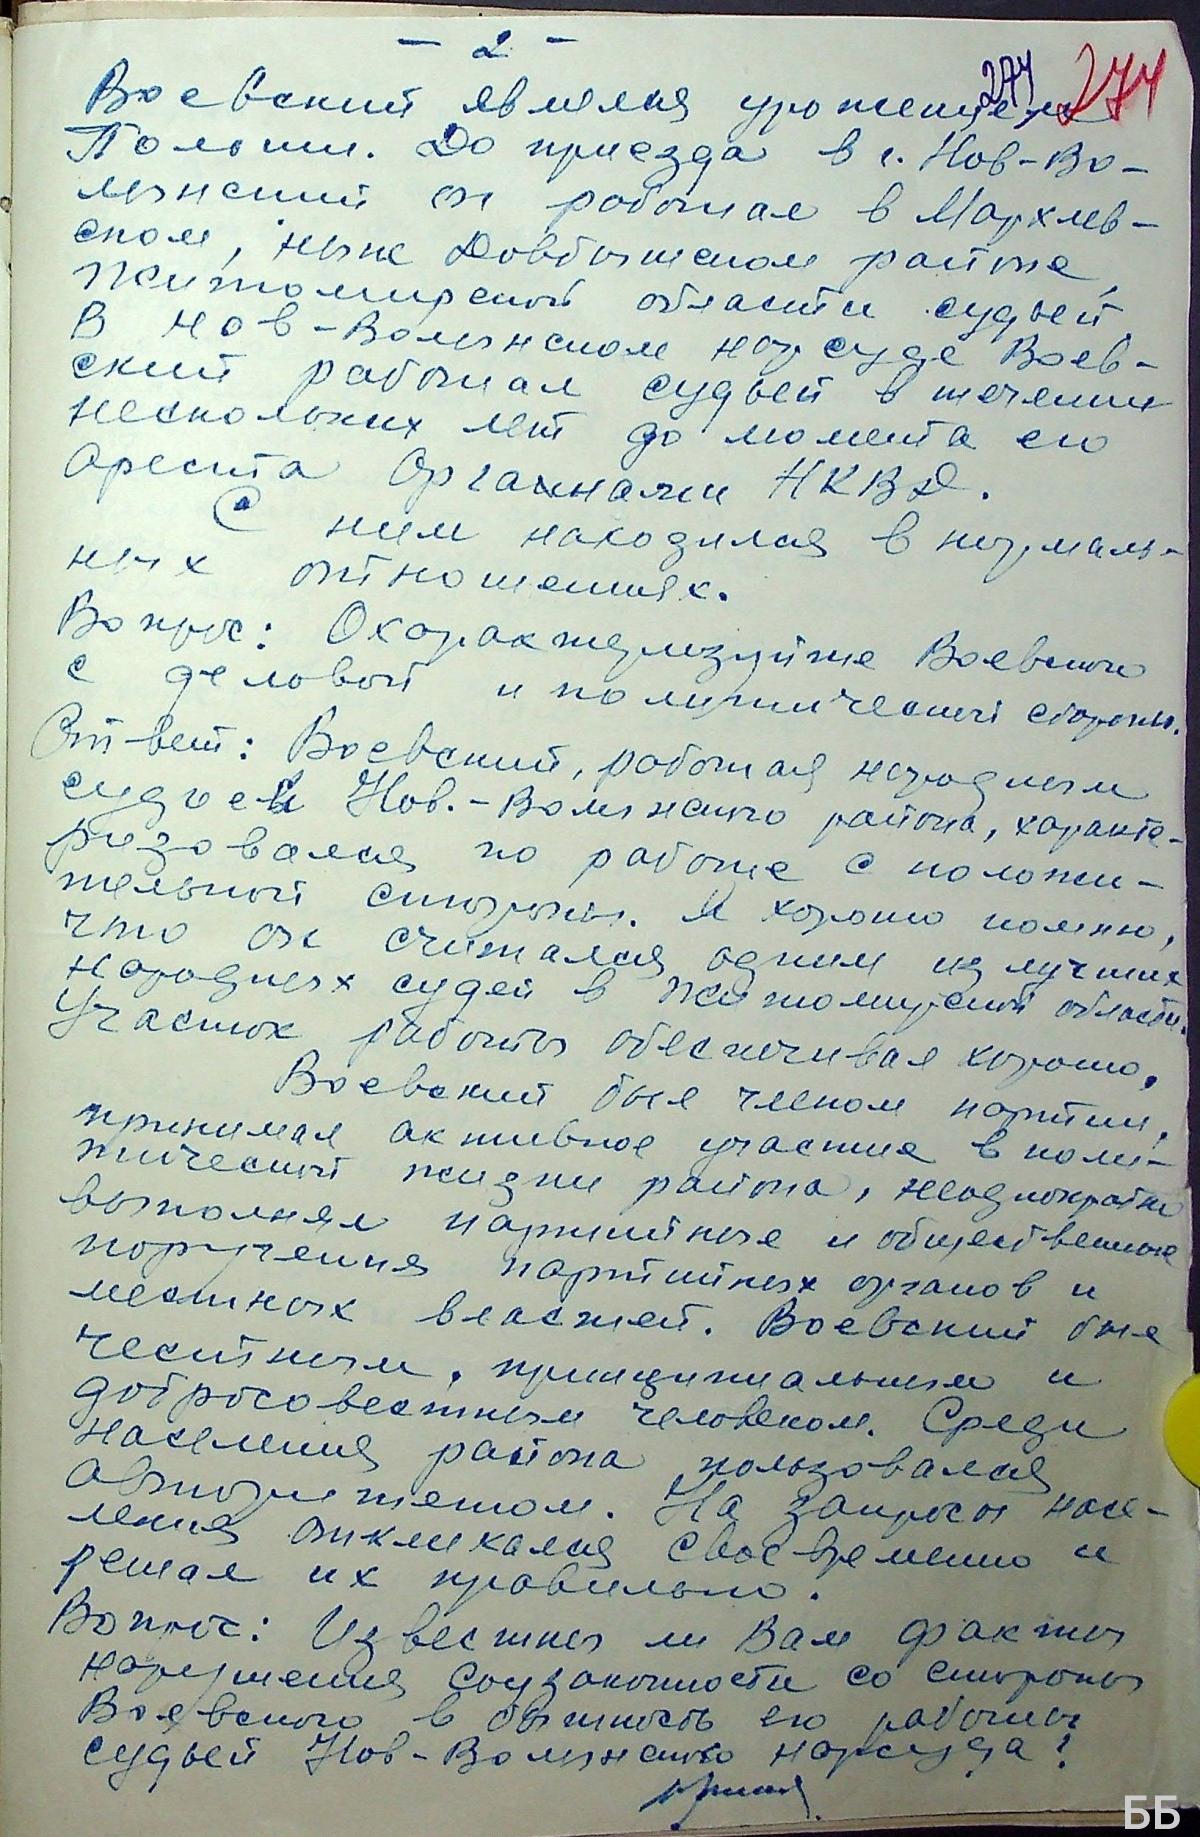 - 2 -
274 274
Воевский являлся уроженцем
Польши. До приезда в г. Нов-Во-
лынский он работал в Мархлев-
ском, ныне Довбышском районе,
Житомирской области судьей.
В Нов-Волынском нарсуде Воев-
ский работал судьей в течении
нескольких лет до момента его
ареста органами НКВД.
С ним находился в нормаль-
ных отношениях.
Вопрос: Охарактеризуйте Воевского
с деловой и политической стороны.
Ответ: Воевский, работая народным
судьей Нов.-Волынского района, характе-
ризовался по работе с положи-
тельной стороны. Я хорошо помню,
что он считался одним из лучших
народных судей в Житомирской области.
Участок работы обеспечивал хорошо.
Воевский был членом партии,
принимал активное участие в поли-
тической жизни района, неоднократно
выполнял партийные и общественные
поручения партийных органов и
местных властей. Воевский был
честным, принципиальным и
добросовестным человеком. Среди
населения района пользовался
авторитетом. На запросы насе-
ления откликался своевременно и
решал их правильно.
Вопрос: Известны ли Вам факты
нарушения соцзаконности со стороны
Воевского в бытность его работы
судьей Нов-Волынского нарсуда?
ББ